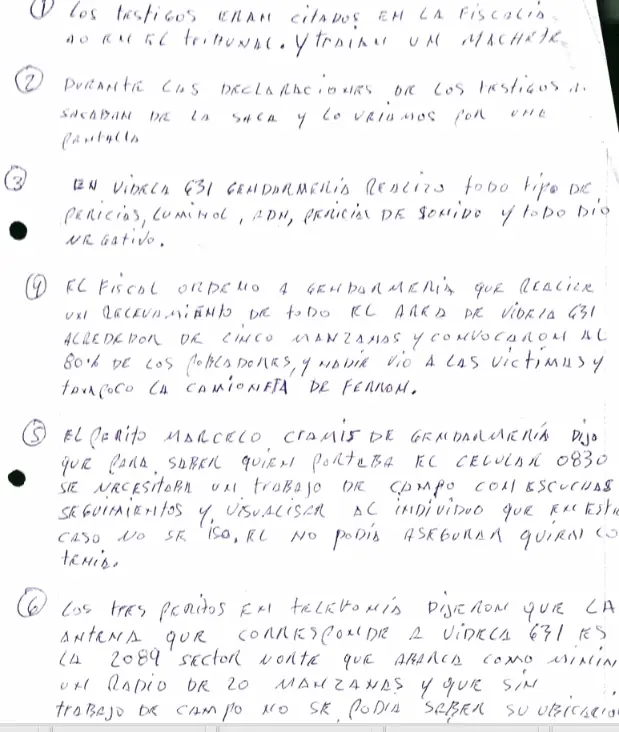 ① LOS TESTIGOS ERAN CITADOS EN LA FISCALIA
NO EN EL TRIBUNAL. Y TRAIAN UN MACHETE
② DURANTE LAS DECLARACIONES DE LOS TESTIGOS
SACABAN DE LA SALA Y LO VEIAMOS POR UNA
PANTALLA
③ EN VIDELA 631 GENDARMERIA REALIZO TODO TIPO DE
PERICIAS, LUMINOL, ADN, PERICIA DE SONIDO Y TODO DIO
NEGATIVO.
④ EL FISCAL ORDENO A GENDARMERIA QUE REALICE
UN RELEVAMIENTO DE TODO EL AREA DE VIDELA 631
ALREDEDOR DE CINCO MANZANAS Y CONVOCARON AL
80% DE LOS POBLADORES, Y NADIE VIO A LAS VICTIMAS Y
TAMPOCO LA CAMIONETA DE FERRON.
⑤ EL PERITO MARCELO DE GENDARMERIA DIJO
QUE PARA SABER QUIEN PORTABA EL CELULAR 0830
SE NECESITABA UN TRABAJO DE CAMPO CON ESCUCHAS
SEGUIMIENTOS Y VISUALISAR AL INDIVIDUO QUE EN ESTE
CASO NO SE ISO, EL NO PODIA ASEGURAR QUIEN LO
TENIA.
⑥ LOS TRES PERITOS EN TELEFONIA DIJERON QUE LA
ANTENA QUE CORRESPONDE A VIDELA 631 ES
LA 2089 SECTOR NORTE QUE ABARCA COMO MINIM
UN RADIO DE 20 MANZANAS Y QUE SIN
TRABAJO DE CAMPO NO SE PODIA SABER SU UBICACIO